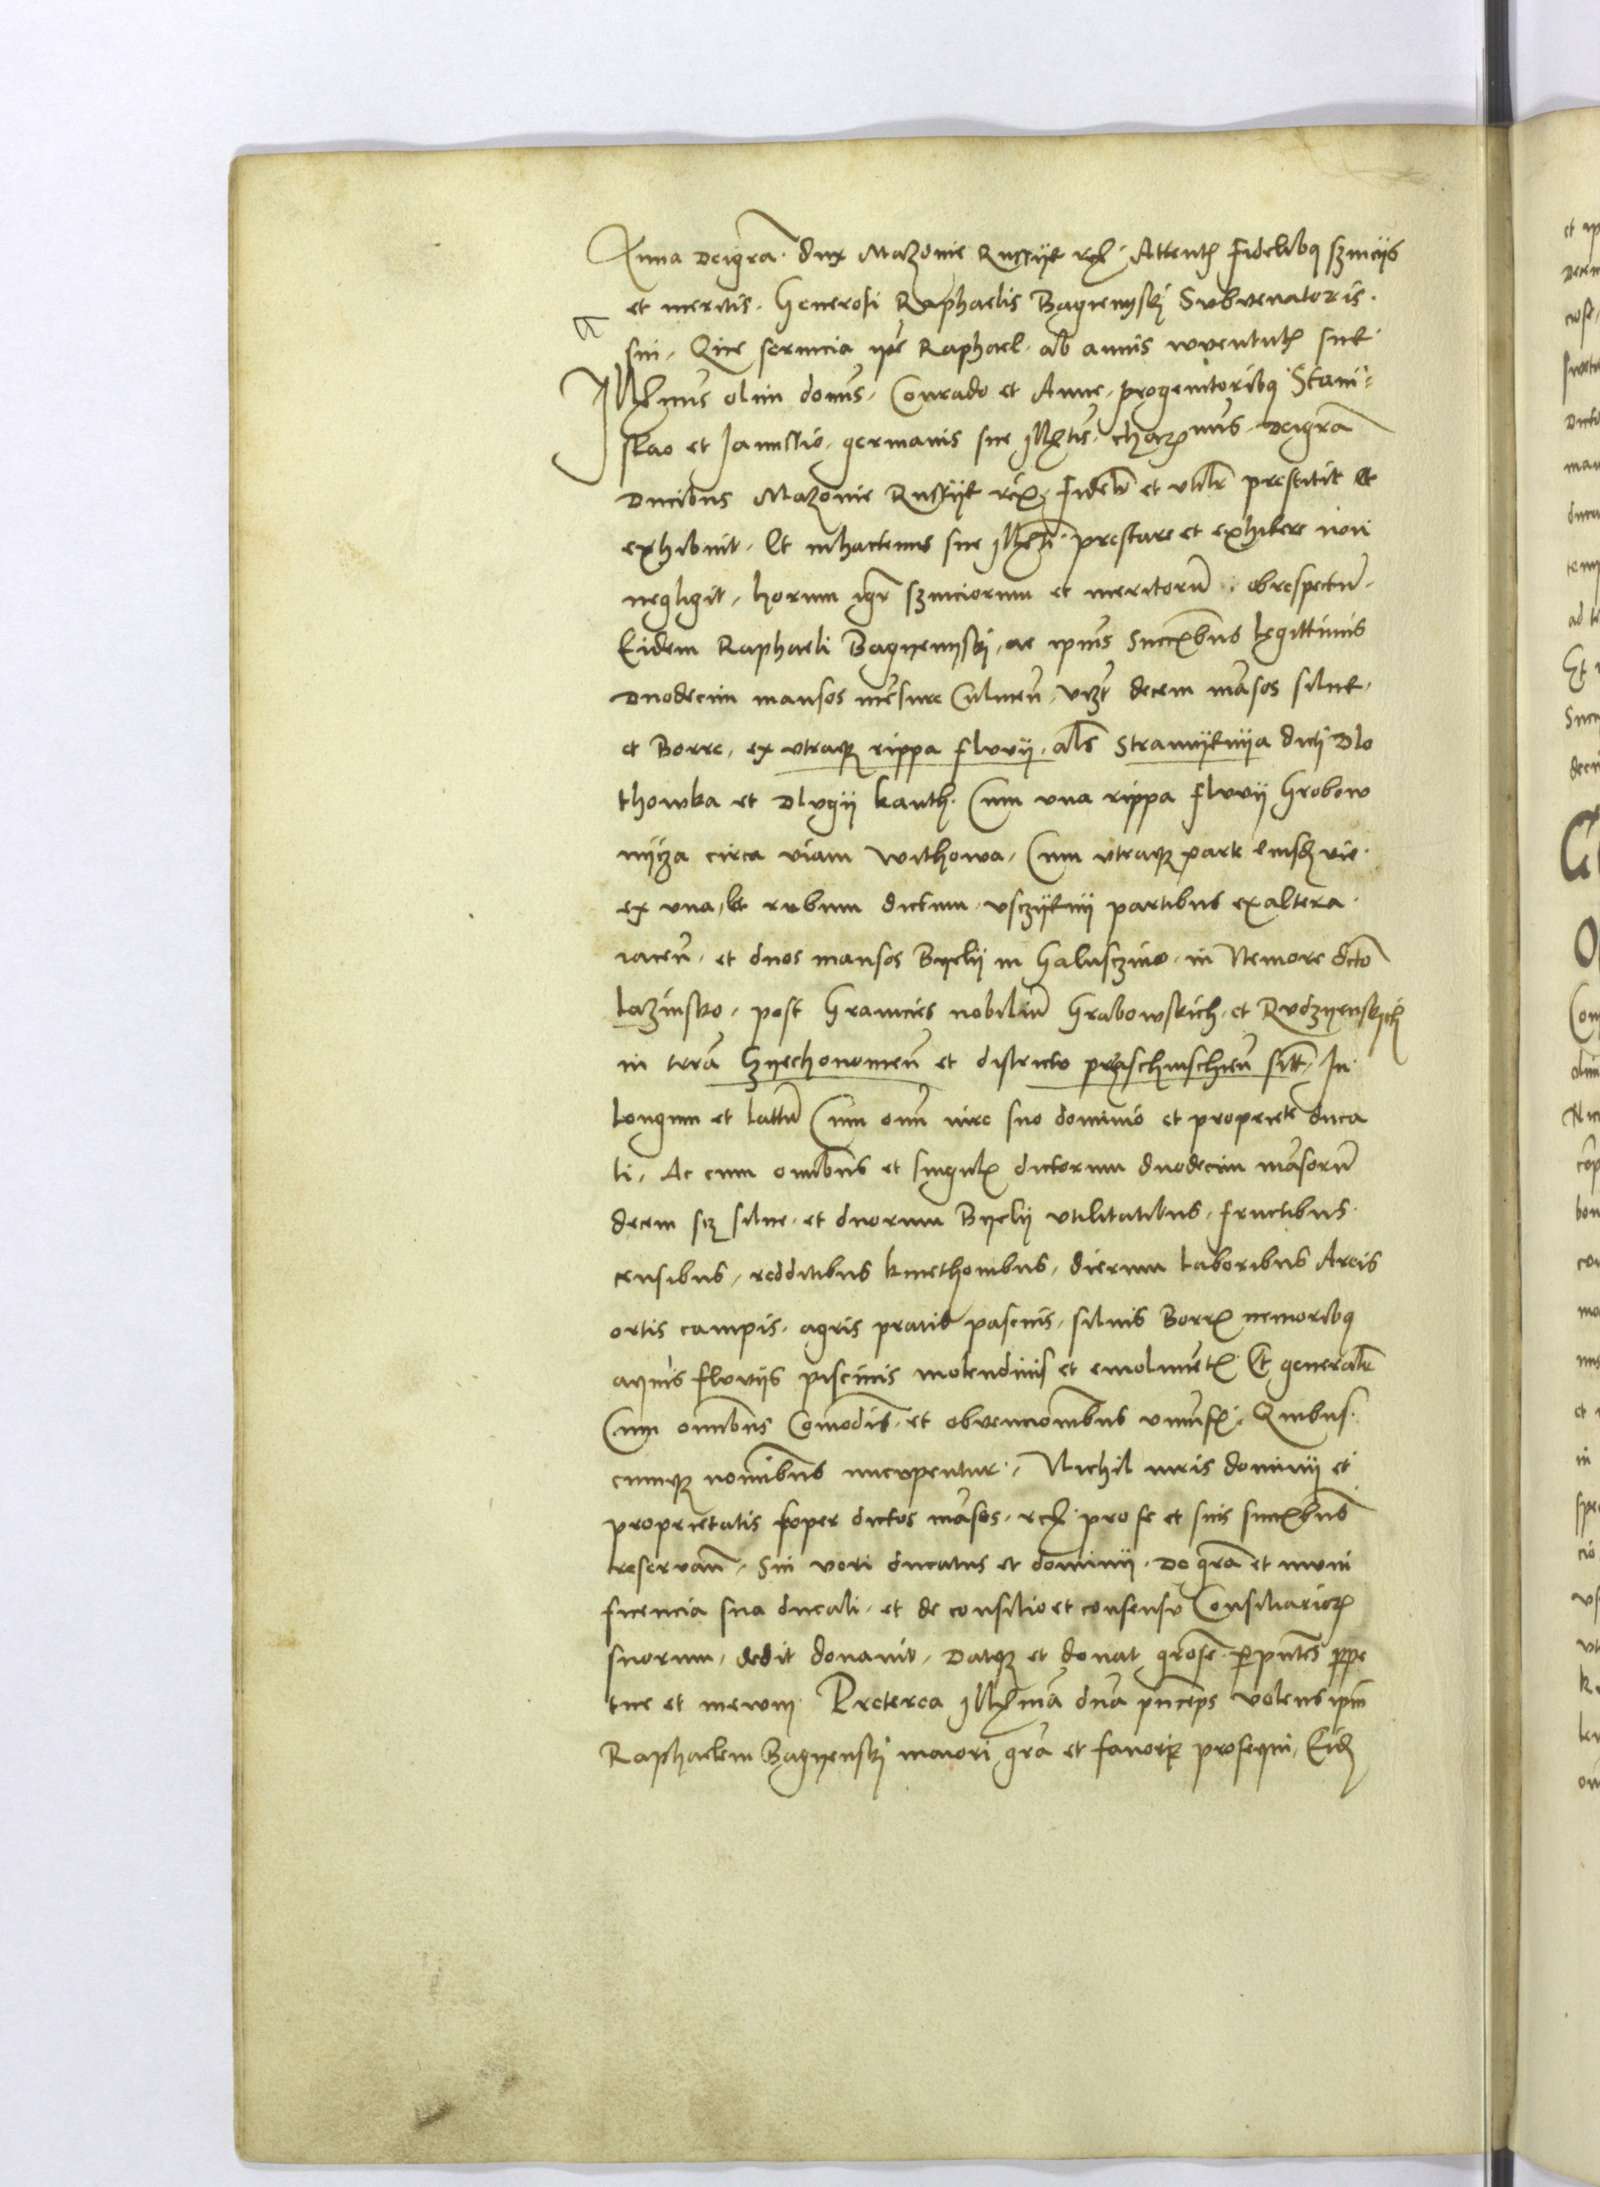 Anna Deigra͂. dux Mazouie Russiiæ rcꝭ. Attentꝭ fidelibꝗ sꝫuicijs
et meritis. Generosi Raphaelis Bagienyskj Subvenatoris.
sui. Que seruicia ipe͂ Raphael. ab annis iuventutꝭ suæ.
Illꝭmus olim domͥs. Conrado et Anne. progenitoribꝗ Stani=
slao et Janussio. germanis sue Illꝭtis. charꝭmus. Deigra͂
Ducibus Mazouie Russiiæ rcꝭ. fidelr͂ et vtilr͂ prestitit Et
exhibuit. Et inhactenus sue Illꝭti. prestare et exhibere non
negligit. horum igr͂ sꝫuiciorum et meritoru͂. obrespectu͂.
Eidem Raphaeli Bagyenyskj, ac ipius Succꝭbus legittimis
Duodecim mansos me͂sure Culmen͂. vizt͂ decem ma͂sos siluæ.
et Borre, ex vtraqꝫ rippa fluvij. als͂ Strumyenya dictj Dlo
thowka et Dlvgij kanth. Cum vna rippa fluvij Grobow
nycza circa viam withowa, Cum vtraqꝫ parte eiusdꝫ vie.
ex vna, et rubum dictum vsczyeny partibus exaltera.
iacen͂. et duos mansos Byelij in Galusczino. in Nemore dcto͂
lazinsko. post Granicies nobiliu͂ Grabowskich. et Rudzyenskych
in terra͂ Czyechonomen͂ et districto przaschnschien͂ sitꝭ. In
longum et lattu͂ Cum omni͂ iure suo dominio et propriete duca
li. Ac cum omibus͂ et singulꝭ dictorum duodecim ma͂soru͂
decem sꝫ silue. et duorum Byelij vtilitatibus. fructibus.
censibus, redditibus kmethonibus, dierum laboribus Areis
ortis campis. agris pratis pascuis, siluis Borrꝭ nemoribꝗ
aquis fluvijs piscinis molendinis et emolume͂tꝭ. Et generalr͂
Cum omnibus͂ Comodis͂. et obvencionibus͂ vniuersꝭ. Quibus.
cumqꝫ nominibus͂ nucupentur. Nichil iuris dominij et
proprietatis super dictos ma͂sos. rcꝭ. pro se et suis succꝭbus͂
reservan͂. Sui veri ducatus et dominij. De gra͂ et muni
ficencia sua ducali. et de consilio et consensu Consiliariorꝭ
suorum, dedit donavit, Datqꝫ et donat, grose͂. ꝑpntes͂ ꝑpe
tue et inewm. Preterea Illꝭma͂ dna͂ pnceps͂ volens ipm͂
Raphaelem Bagyenskj maiori gra͂ et favore prosequi, Eidꝫ